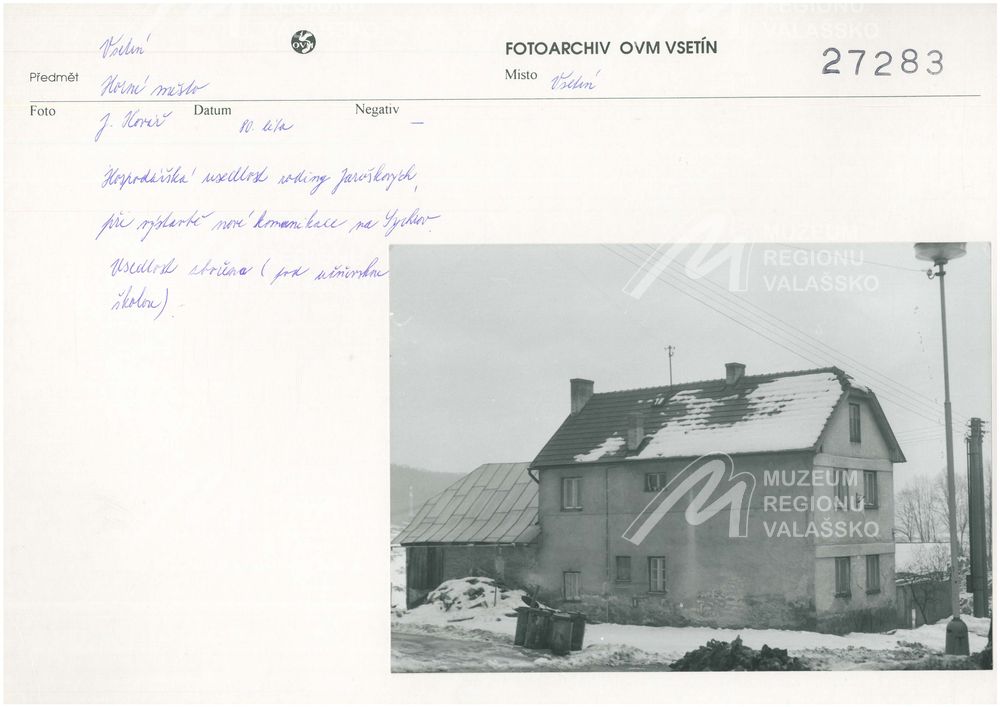 Vsetín
OVM
FOTOARCHIV OVM VSETÍN
27283
Předmět Horní město
Místo Vsetín
Foto J. Kovář Datum 80. léta Negativ —
Hospodářská usedlost rodiny Jaruškových,
při výstavbě nové komunikace na Sychrov.
Usedlost zbořena (pod učňovskou
školou).
MUZEUM
REGIONU
VALAŠSKO
MUZEUM
REGIONU
VALAŠSKO